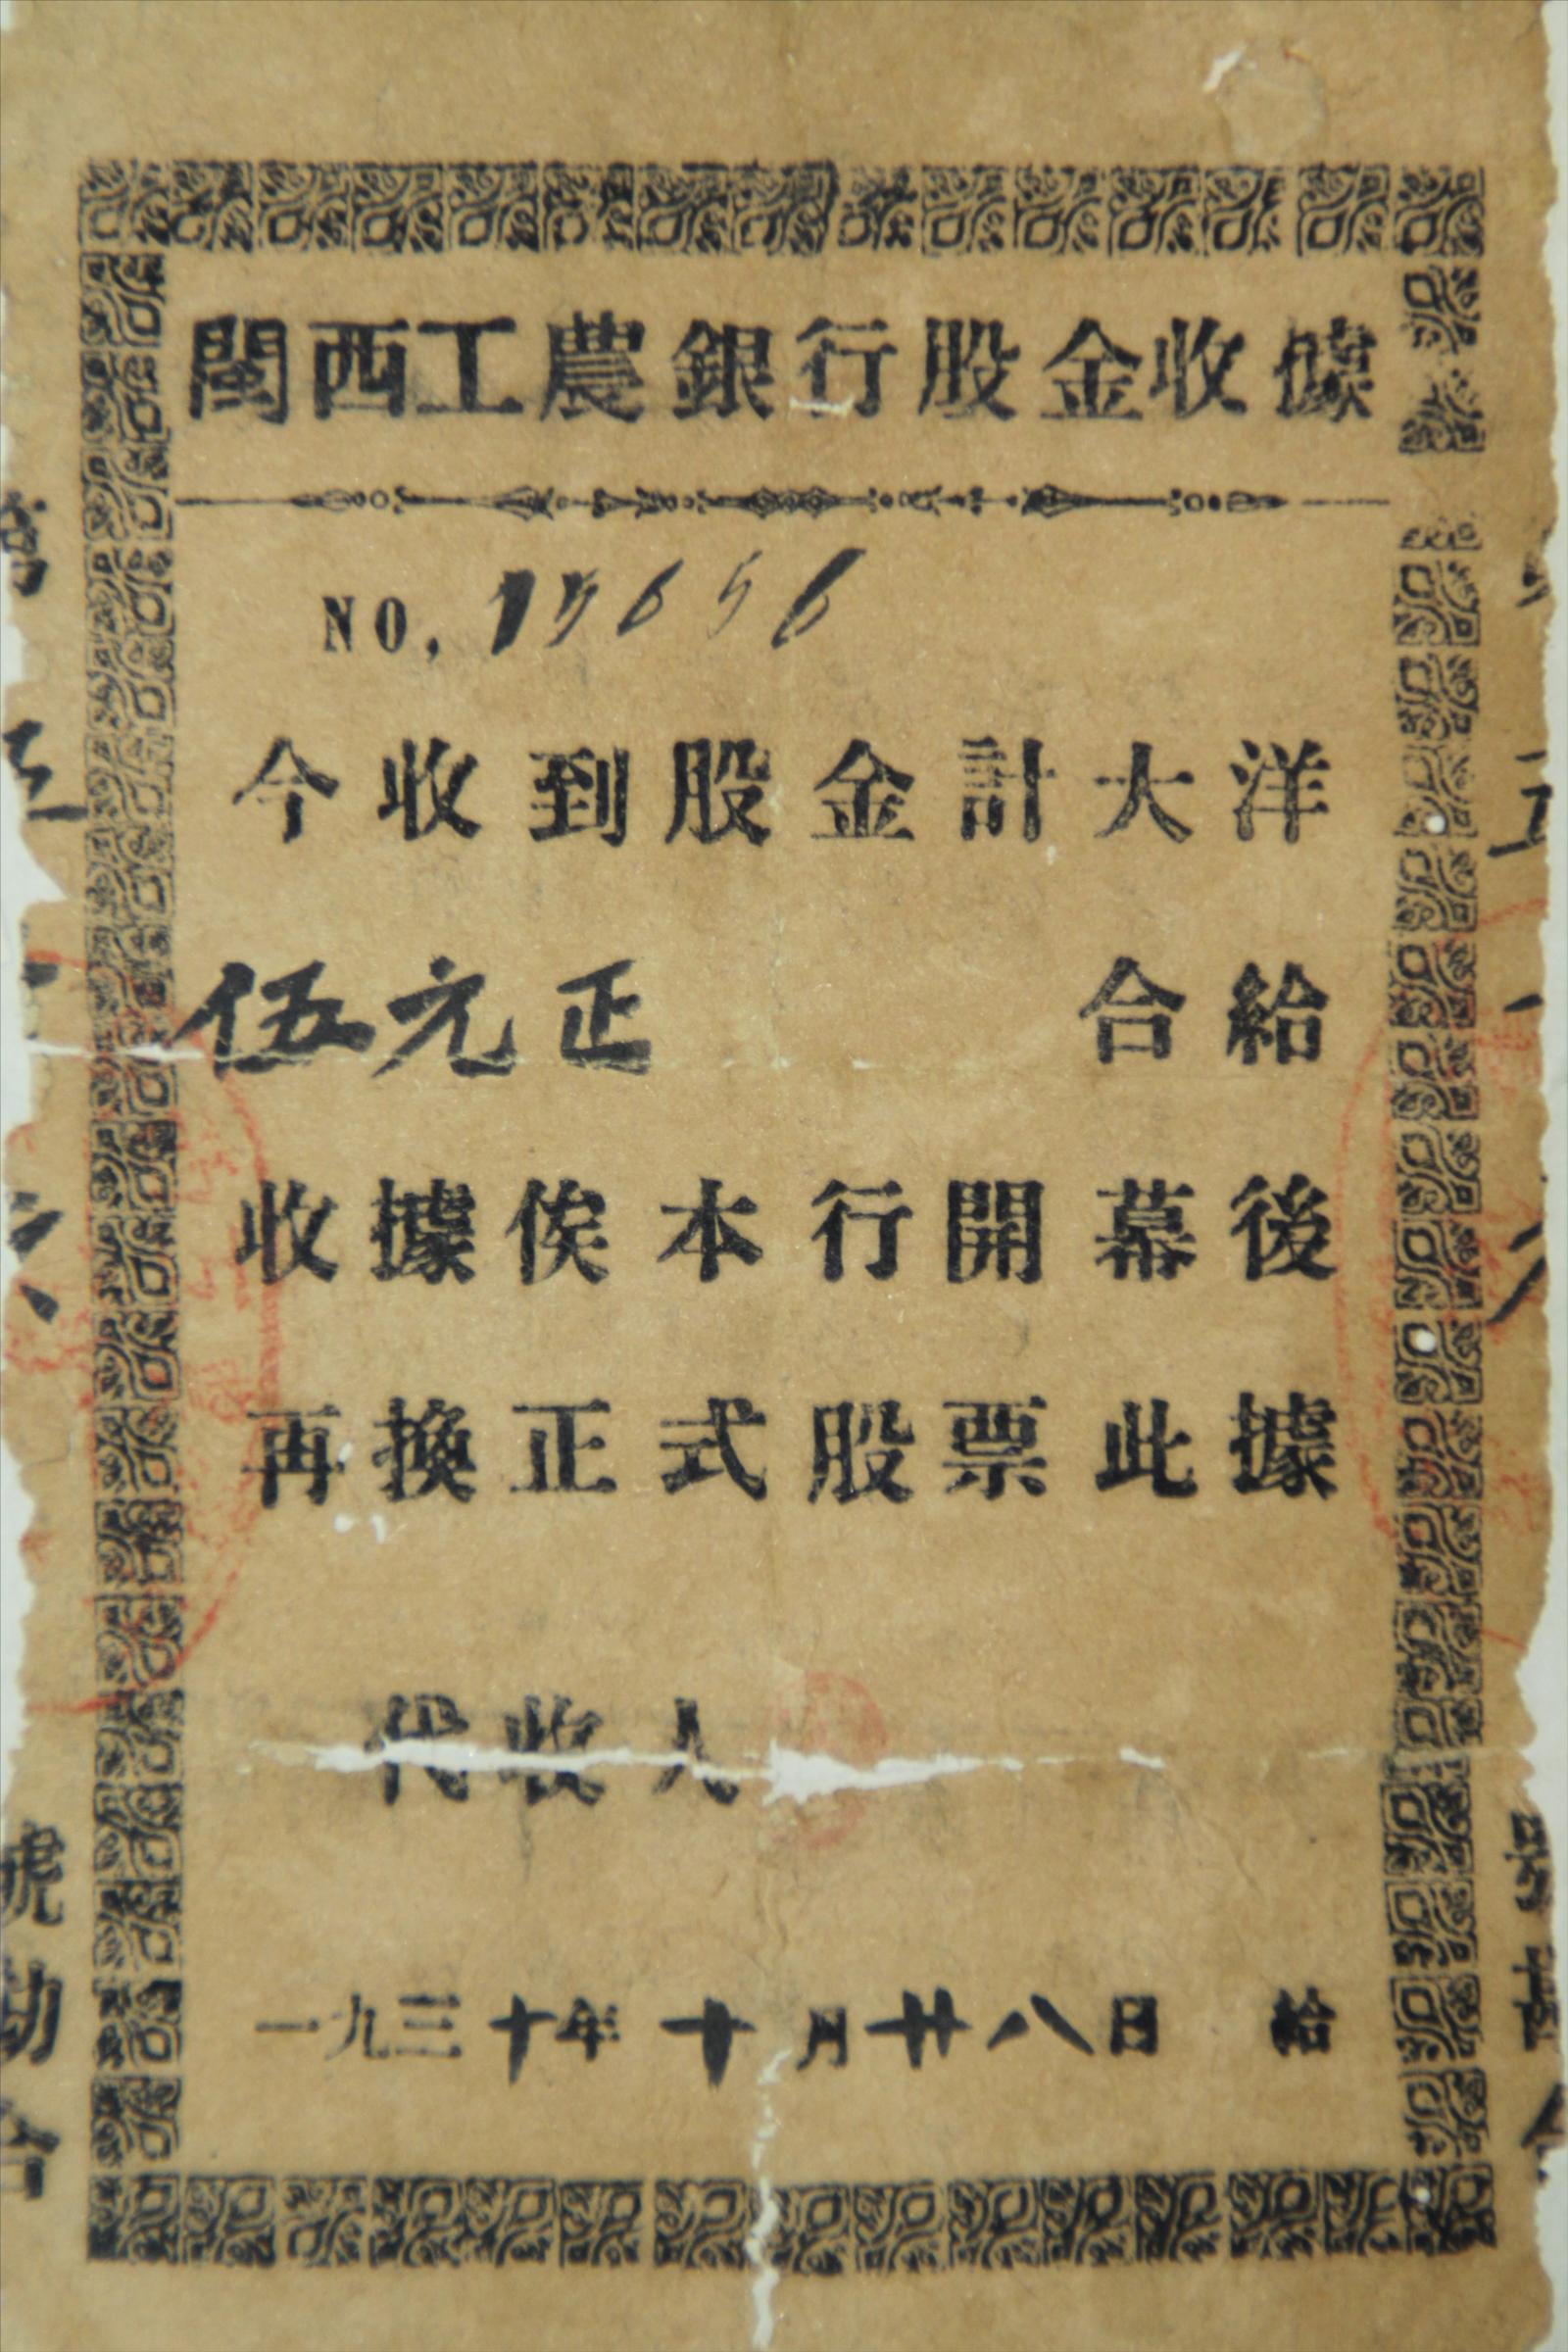 閩西工農銀行股金收據
NO. 15656
今收到股金計大洋
伍元正 合給
收據俟本行開幕後
再換正式股票此據
代收人
一九三十年十月廿八日 給
號勛合